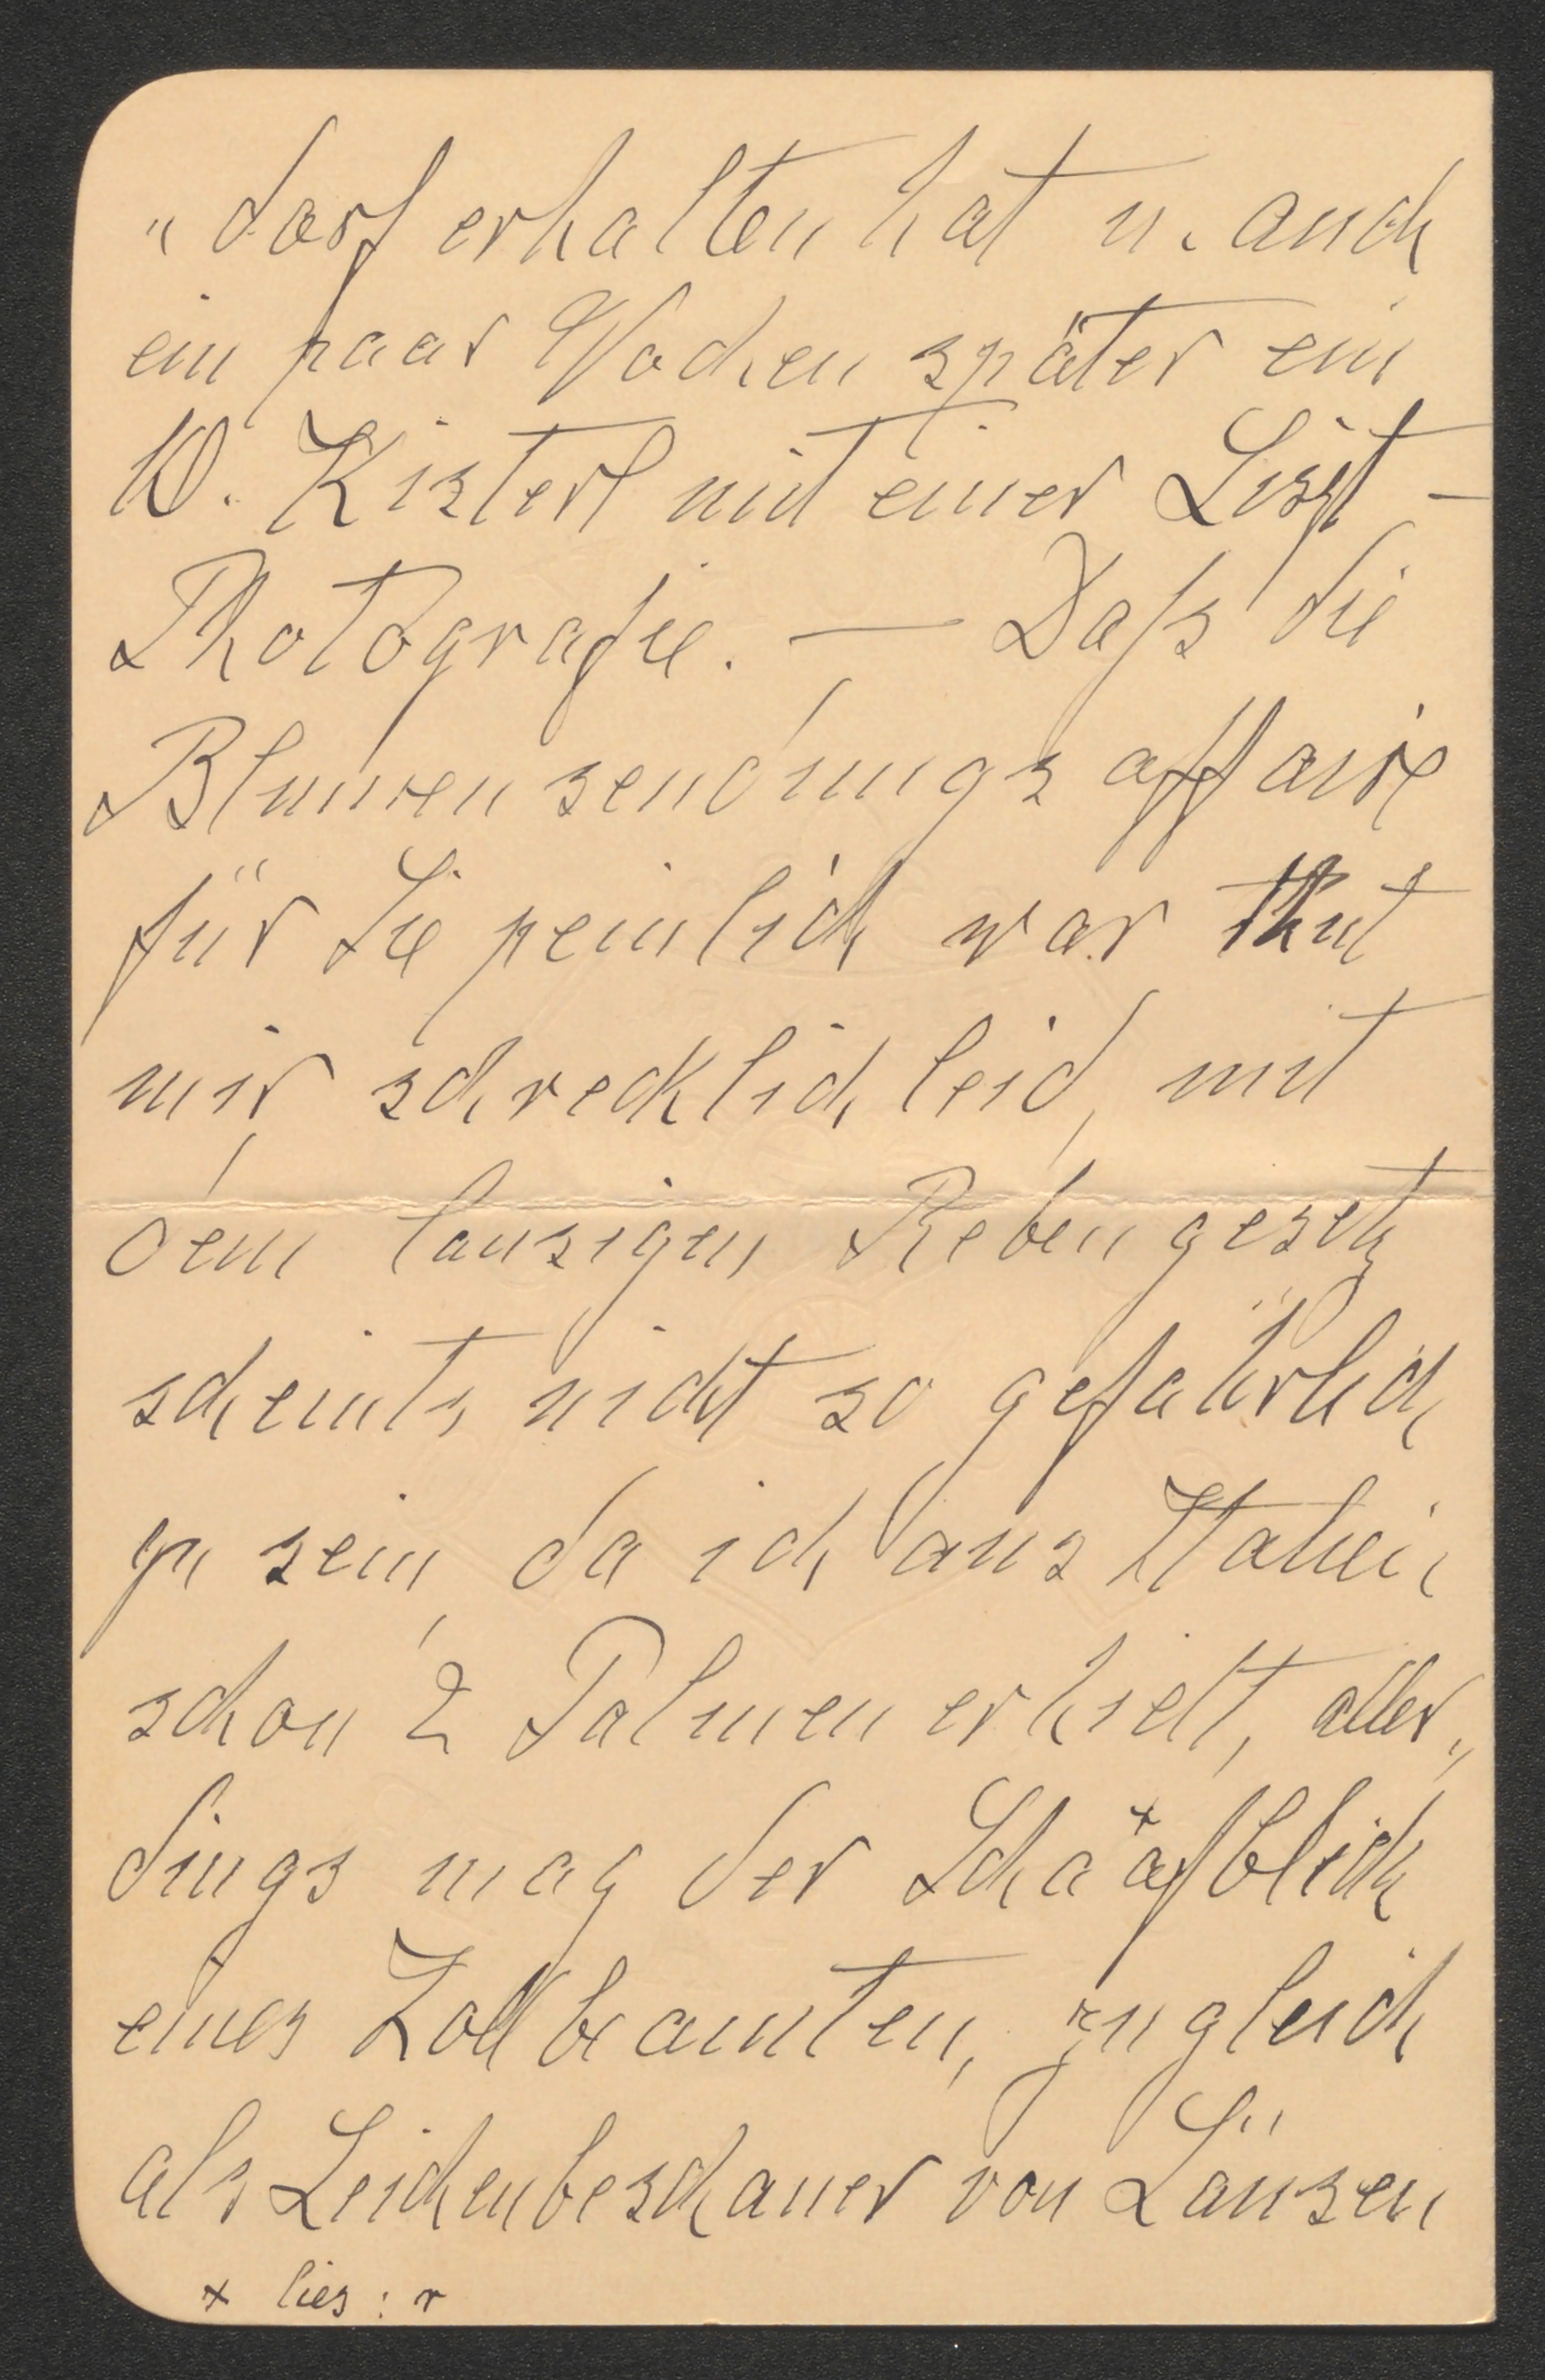 „dorf erhalten hat u. auch
ein paar Wochen später ein
W. Kisterl mit einer Liszt-
Photografie. — Daß die
Blumensendungsaffaire
für Sie peinlich war thut
mir schrecklich leid, mit
dem lausigen Rebengesetz
scheints nicht so gefährlich
zu sein, da ich aus Italien
schon 2 Palmen erhielt, aller„
dings mag der Schäafblick
eines Zollbeamten, zugleich
als Leichenbeschauer von Läusen
x lies: r